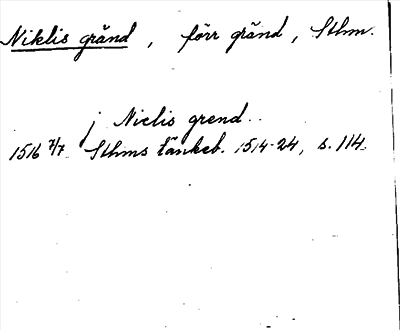 Niklis gränd, förr gränd, Sthm.
j Niclis grend..
1516 7/7 Sthms tänkeb. 1514-24, s. 114.